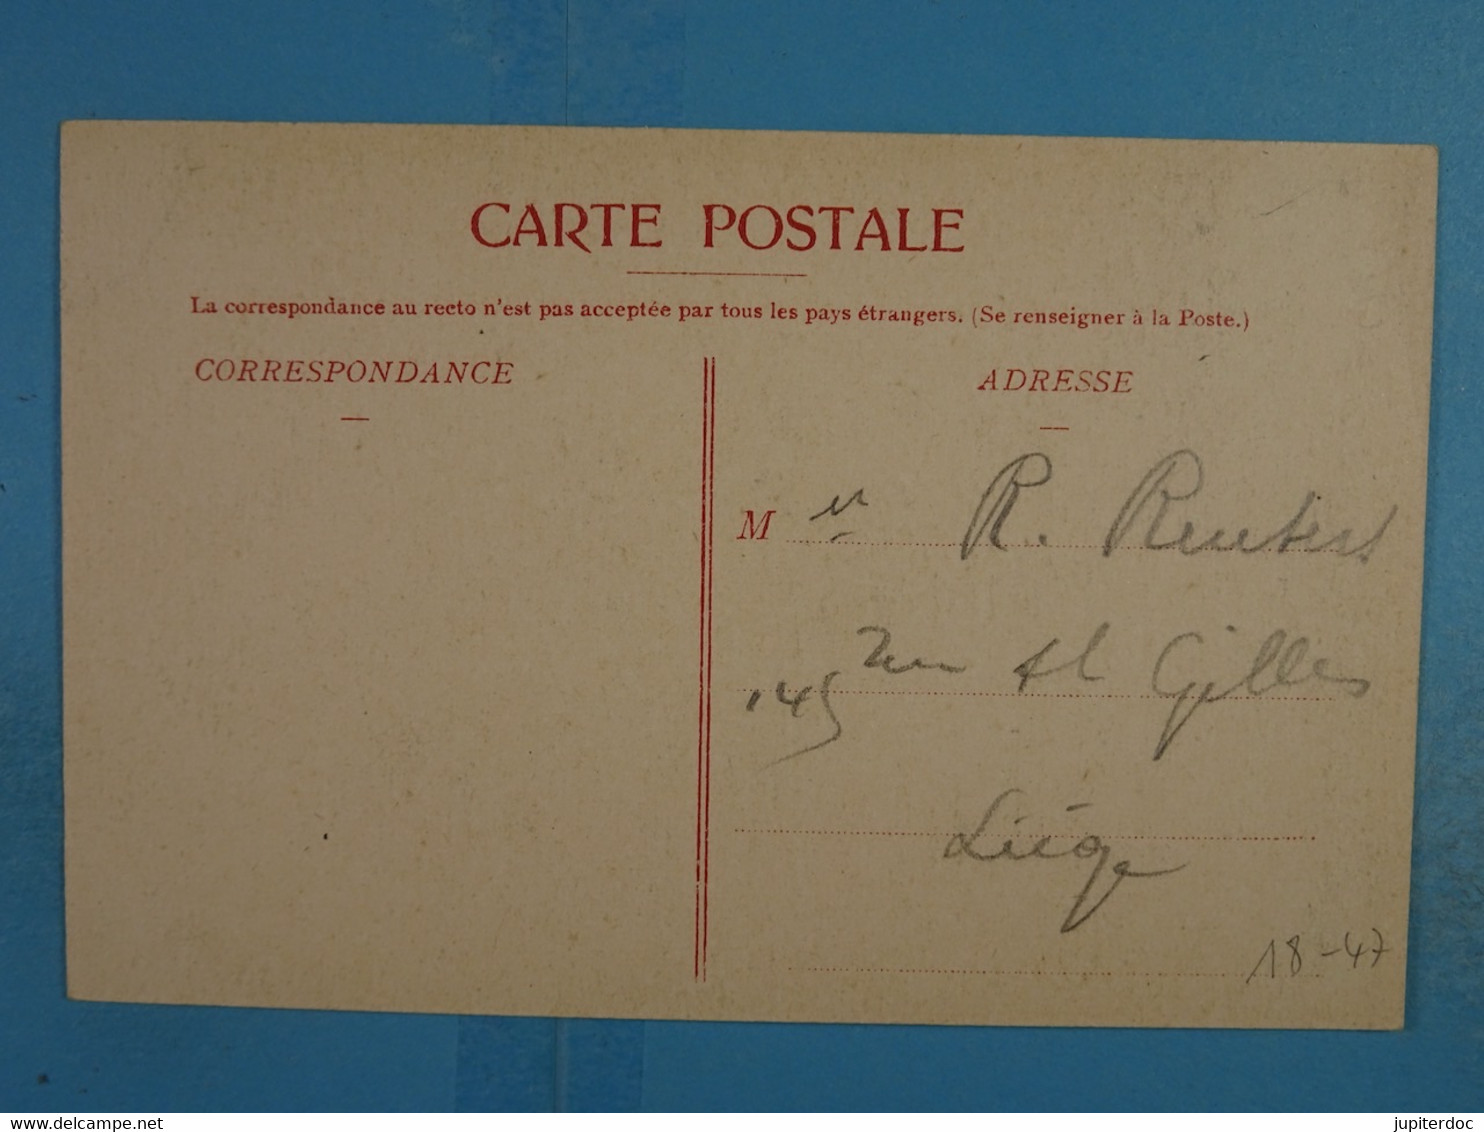 CARTE POSTALE
La correspondance au recto n'est pas acceptée par tous les pays étrangers. (Se renseigner à la Poste.)
CORRESPONDANCE
ADRESSE
M r R.
145 rue st Gilles
Liége
18-47
jupiterdoc